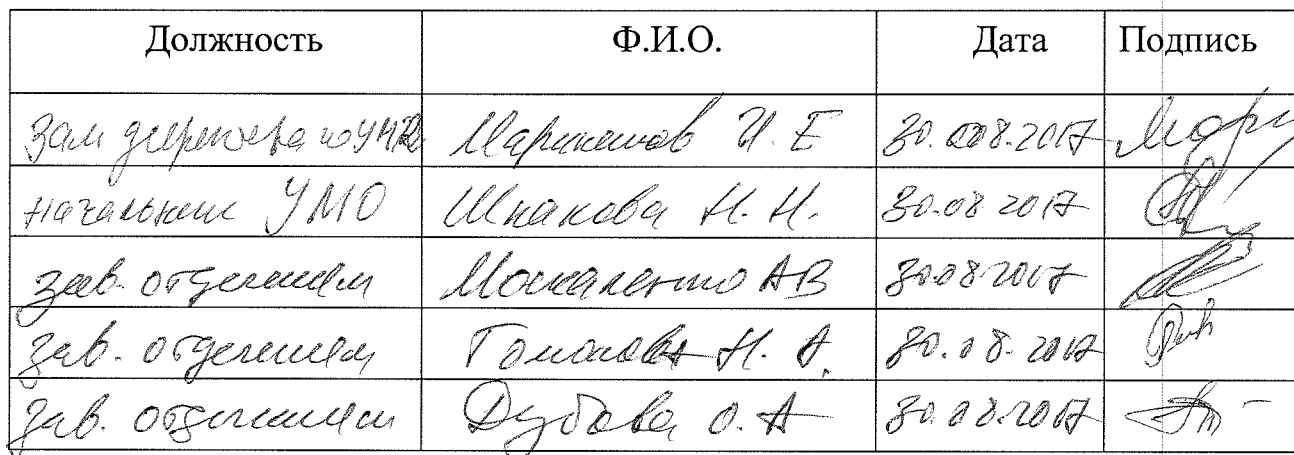 Должность Ф.И.О. Дата Подпись
Зам директора по УМР И. Е 30.08.2017
Начальник УМО Шпакова Н. Н. 30.08 2017
зав. отделением Москаленко АВ 30 08 2017
зав. отделением Н. А. 30.08.2017
зав. отделением Дубова О. А 30.08.2017